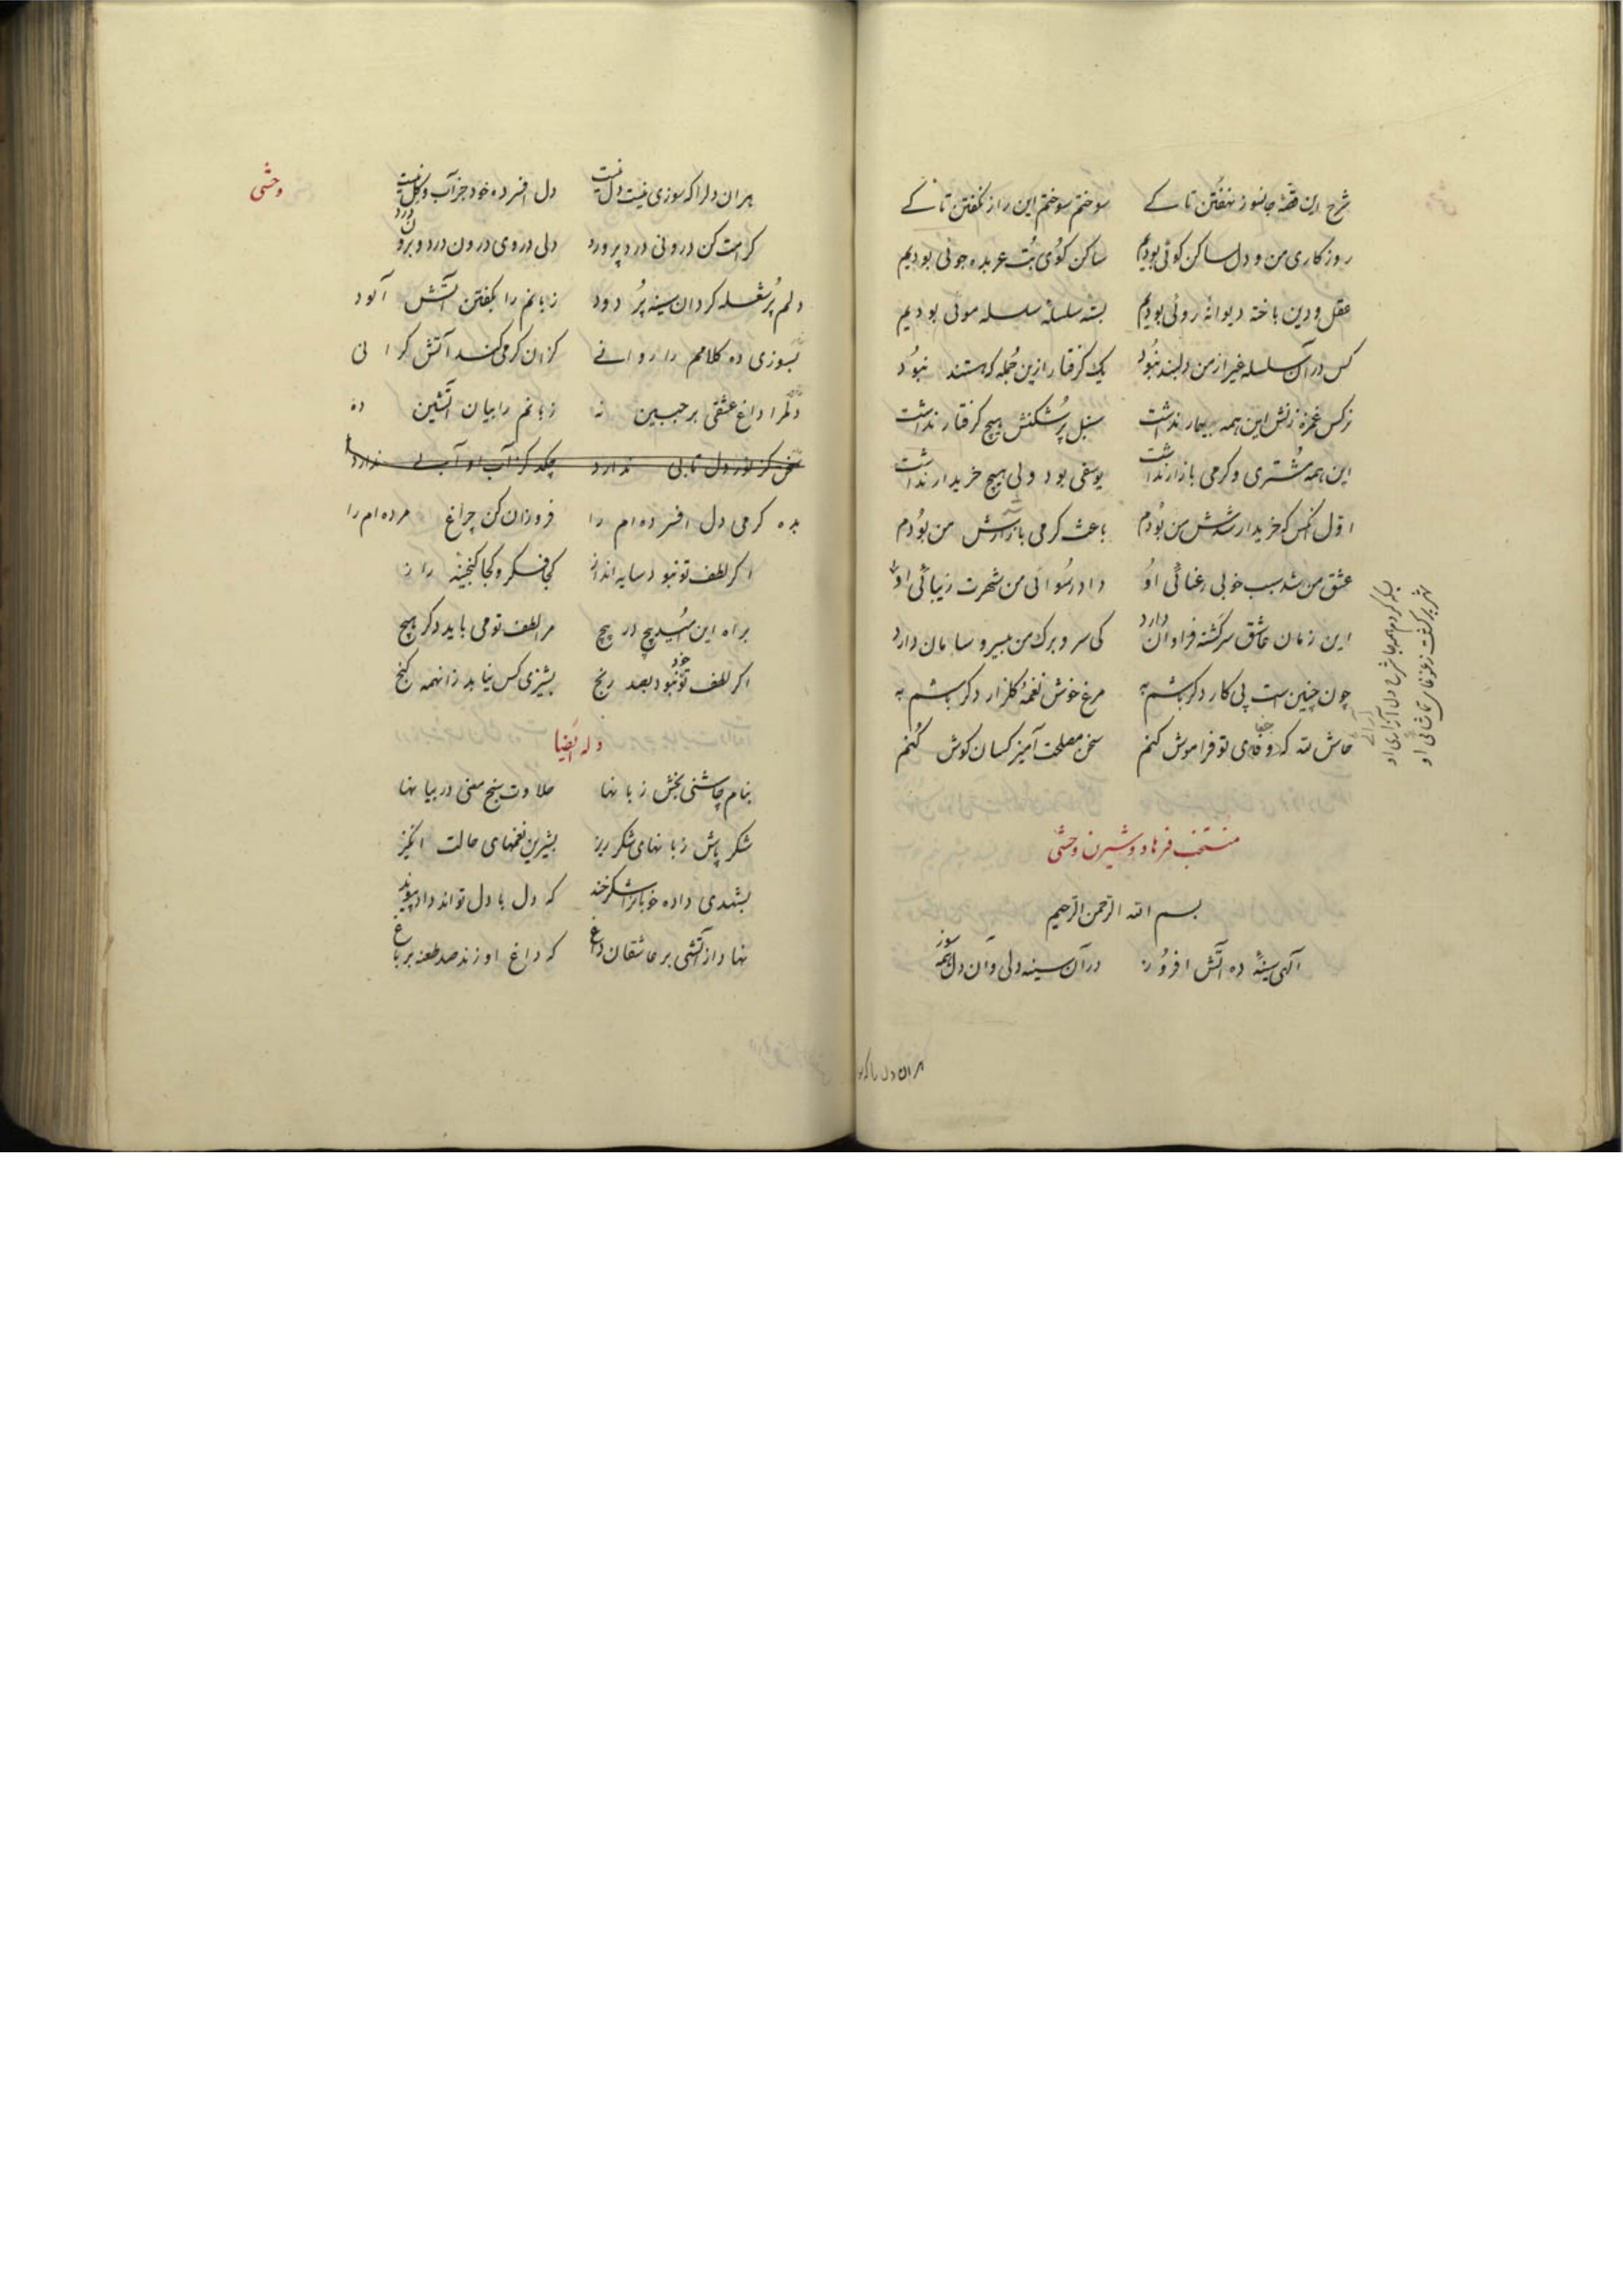 شرح این قصهٔ جانسوز نهفتن تا کے سوختم سوختم این راز نکفتن تا کے
روزکاری من و دل ساکن کوئی بودیم ساکن کوی بت عربده جوئی بودیم
عقل و دین باخته دیوانه روئی بودیم بستهٔ سلسلهٔ سلسله موئی بودیم
کس در آن سلسله غیر از من و دلبند نبود یک کرفتار ازین جمله که هستند نبود
نرکس غمزه زنش این همه بیمار نداشت سنبل پرشکنش هیچ کرفتار نداشت
این همه مشتری و کرمی بازار نداشت یوسفی بود ولی هیچ خریدار نداشت
اول آنکس که خریدار شدش من بودم باعث کرمی بازارش من بودم
عشق من شد سبب خوبی رعنائی او داد رسوائی من شهرت زیبائی او
بسکه کردم همه جا شرح دل آزاری او
شهر پر کشت ز غوغای تماشائی او
این زمان عاشق سرکشته فراوان دارد کی سر و برک من بیسر و سامان دارد
چون چنین است پی کار دکر باشم به مرغ خوش نغمهٔ کلزار دکر باشم به
حاش لله که وفای تو فراموش کنم سخن مصلحت آمیز کسان کوش کنم
منتخب فرهاد و شیرین وحشی
بسم الله الرحمن الرحیم
الهی سینهٔ ده آتش افروز در آن سینه دلی و آن دل همه سوز
هر آن دل را که
وحشی
هر آن دلرا که سوزی نیست دل نیست دل افسرده خود جز آب و کل نیست
کرامت کن درونی درد پرورد دلی در وی درون درد و برون درد
دلم پر شعله کردان سینه پر دود زبانم را بکفتن آتش آلود
بسوزی ده کلامم را روانے کزان کرمی کند آتش کرانی
دلم را داغ عشقی بر جبین نه زبانم را بیان آتشین ده
سخن کز نور دل تابی ندارد چکد کر آب ازو آبے ندارد
بده کرمی دل افسرده ام را فروزان کن چراغ مرده ام را
اکر لطف تو نبود سایه انداز کجا فکر و کجا کنجینه راز
براه این امید پیچ در پیچ مرا لطف تو می باید دکر هیچ
اکر لطف تو نبود بصد رنج پشیزی کس نیابد زانهمه کنج
وله ایضا
بنام چاشنی بخش زبانها حلاوت سنج معنی در بیانها
شکر پاش زبانهای شکر ریز بشیرین نغمهای حالت انکیز
بشهدی داده خوبانرا شکرخند که دل با دل تواند داد پیوند
نهاد از آتشی بر عاشقان داغ که داغ او زند صد طعنه بر باغ